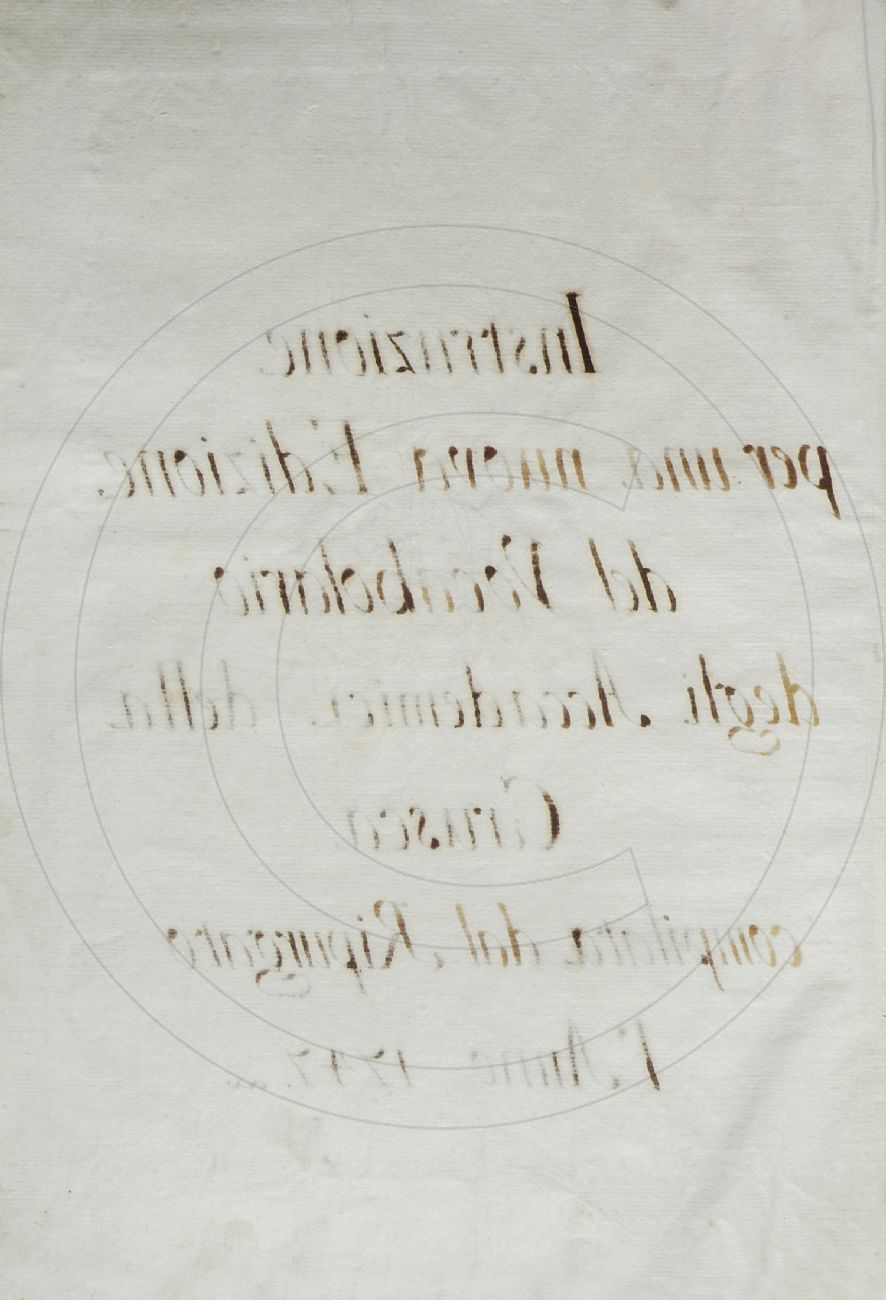 Instruzione
per una nuova Edizione
del Vocabolario
degli Accademici della
Crusca
compilata dal Ripurgato
l'Anno 1747